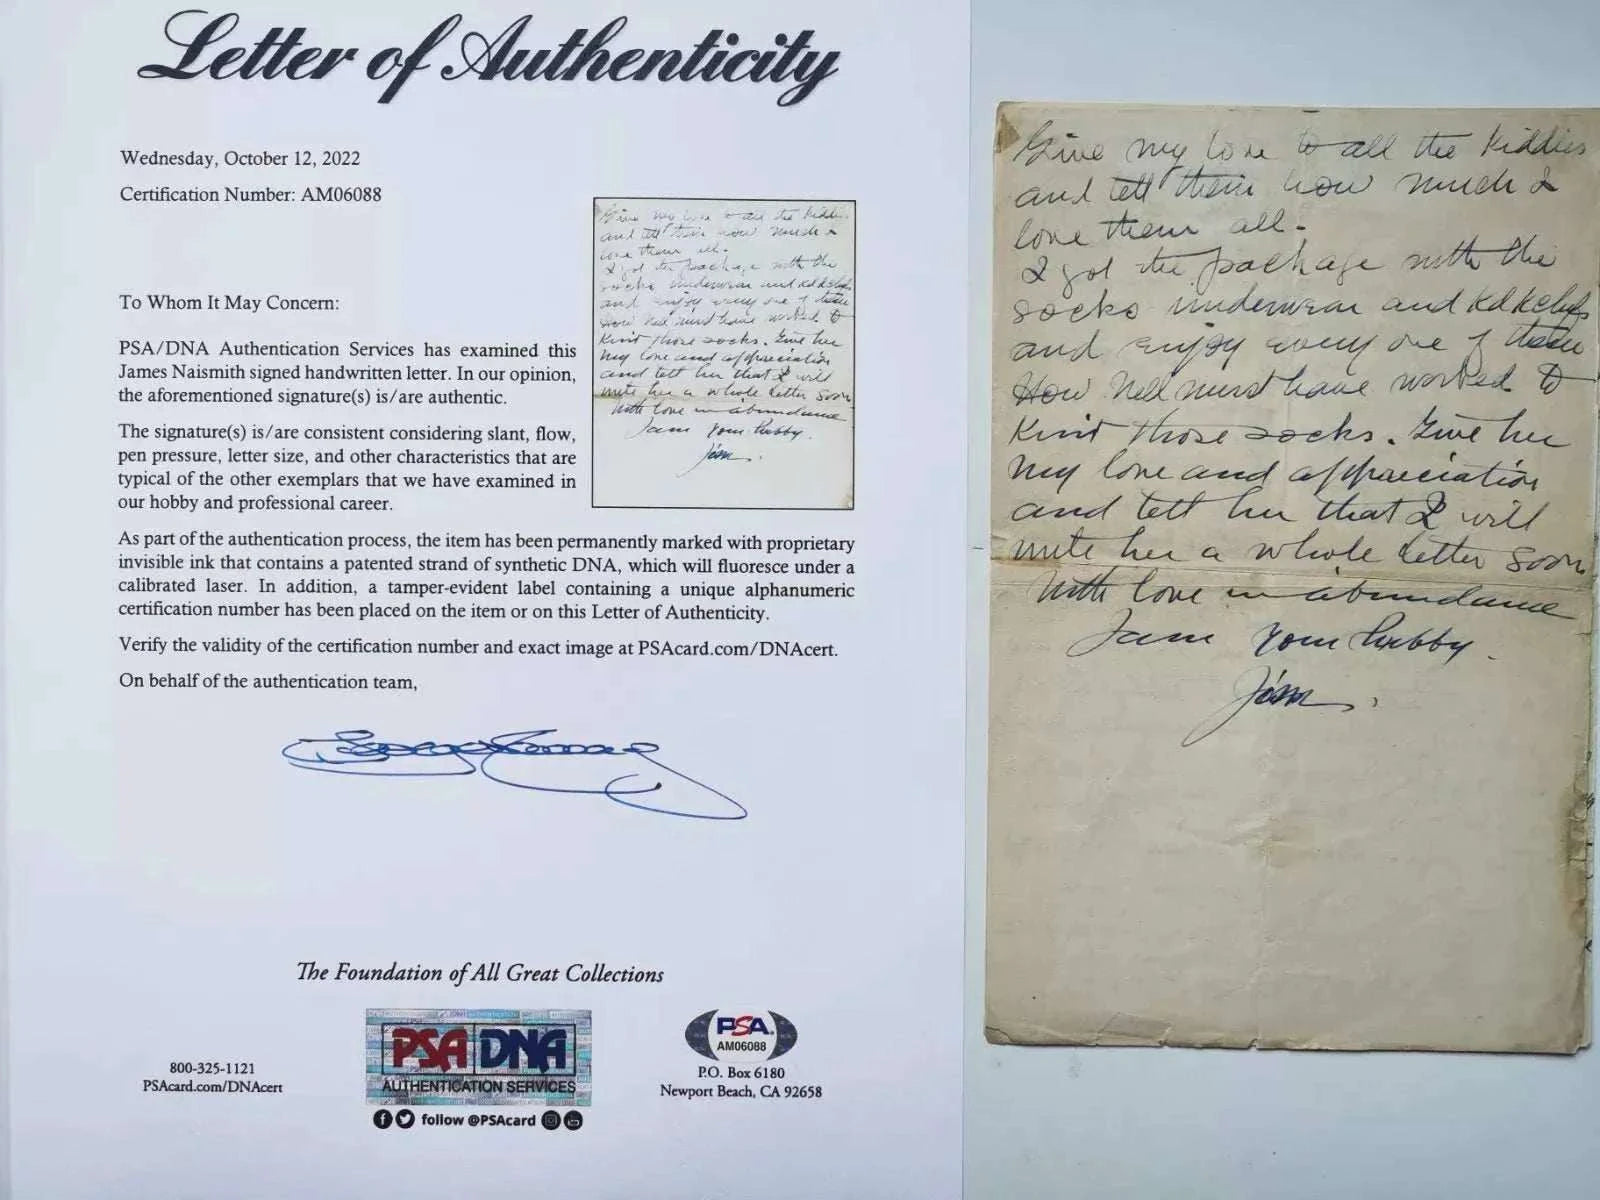 Letter of Authenticity
Wednesday, October 12, 2022
Certification Number: AM06088
To Whom It May Concern:
PSA/DNA Authentication Services has examined this
James Naismith signed handwritten letter. In our opinion,
the aforementioned signature(s) is/are authentic.
The signature(s) is/are consistent considering slant, flow,
pen pressure, letter size, and other characteristics that are
typical of the other exemplars that we have examined in
our hobby and professional career.
As part of the authentication process, the item has been permanently marked with proprietary
invisible ink that contains a patented strand of synthetic DNA, which will fluoresce under a
calibrated laser. In addition, a tamper-evident label containing a unique alphanumeric
certification number has been placed on the item or on this Letter of Authenticity.
Verify the validity of the certification number and exact image at PSAcard.com/DNAcert.
On behalf of the authentication team,
The Foundation of All Great Collections
800-325-1121
PSAcard.com/DNAcert
PSA DNA
AUTHENTICATION SERVICES
follow @PSAcard
PSA
AM06088
P.O. Box 6180
Newport Beach, CA 92658
Give my love to all the kiddies
and tell them how much I
love them all.
I got the package with the
socks underwear and hdkchfs
and enjoy every one of them
How Nell must have worked to
knit those socks. Give her
my love and appreciation
and tell her that I will
write her a whole letter soon
With love in abundance
I am your hubby.
Jim.